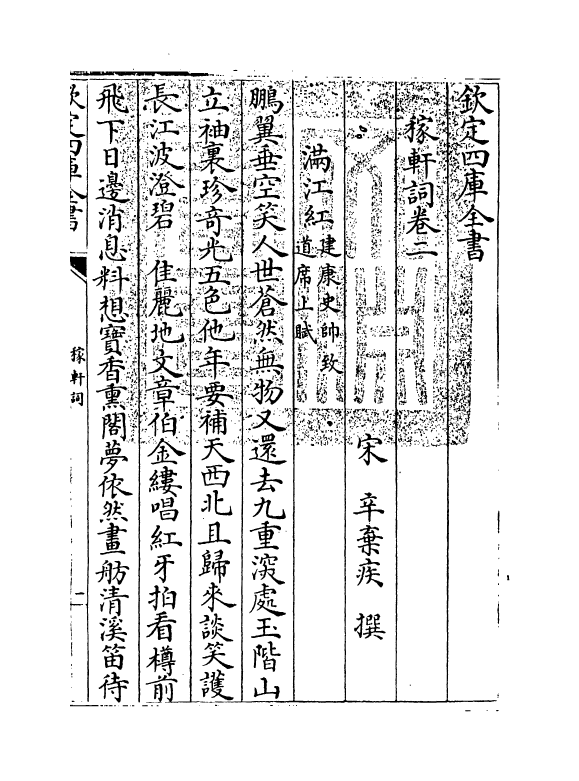 欽定四庫全書
稼軒詞卷二
宋 辛棄疾 撰
滿江紅 建康史帥致道席上賦
鵬翼垂空笑人世蒼然無物又還去九重深處玉階山
立袖裏珍奇光五色他年要補天西北且歸來談笑護
長江波澄碧 佳麗地文章伯金縷唱紅牙拍看樽前
飛下日邊消息料想寶香熏閣夢依然畫舫清溪笛待
欽定四庫全書
稼軒詞
二